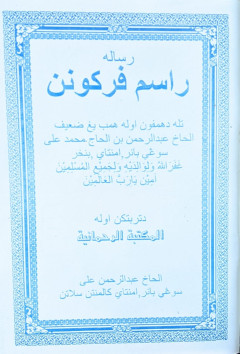 رساله
راسم ڤركونن
تله دهمڤون اوله همب يڠ ضعيف
الحاج عبدالرحمن بن الحاج محمد علي
سوڠي بانر امنتاي، بنجر
غفرالله ولوالديه ولجميع المسلمين
آمين يارب العالمين
دتربتكن اوله
المكتبة الرحمانية
الحاج عبدالرحمن علي
سوڠي بانر امنتاي كالمنتن سلاتن